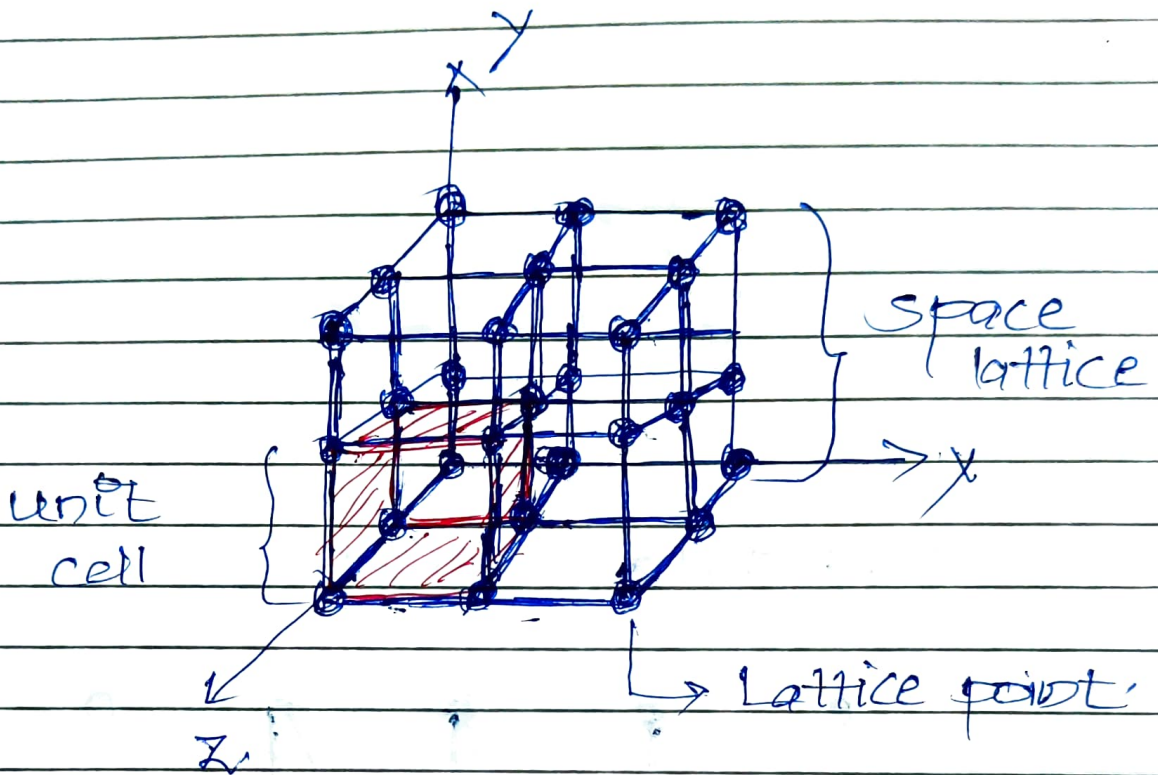 Y
space
lattice
X
unit
cell
Lattice point.
Z